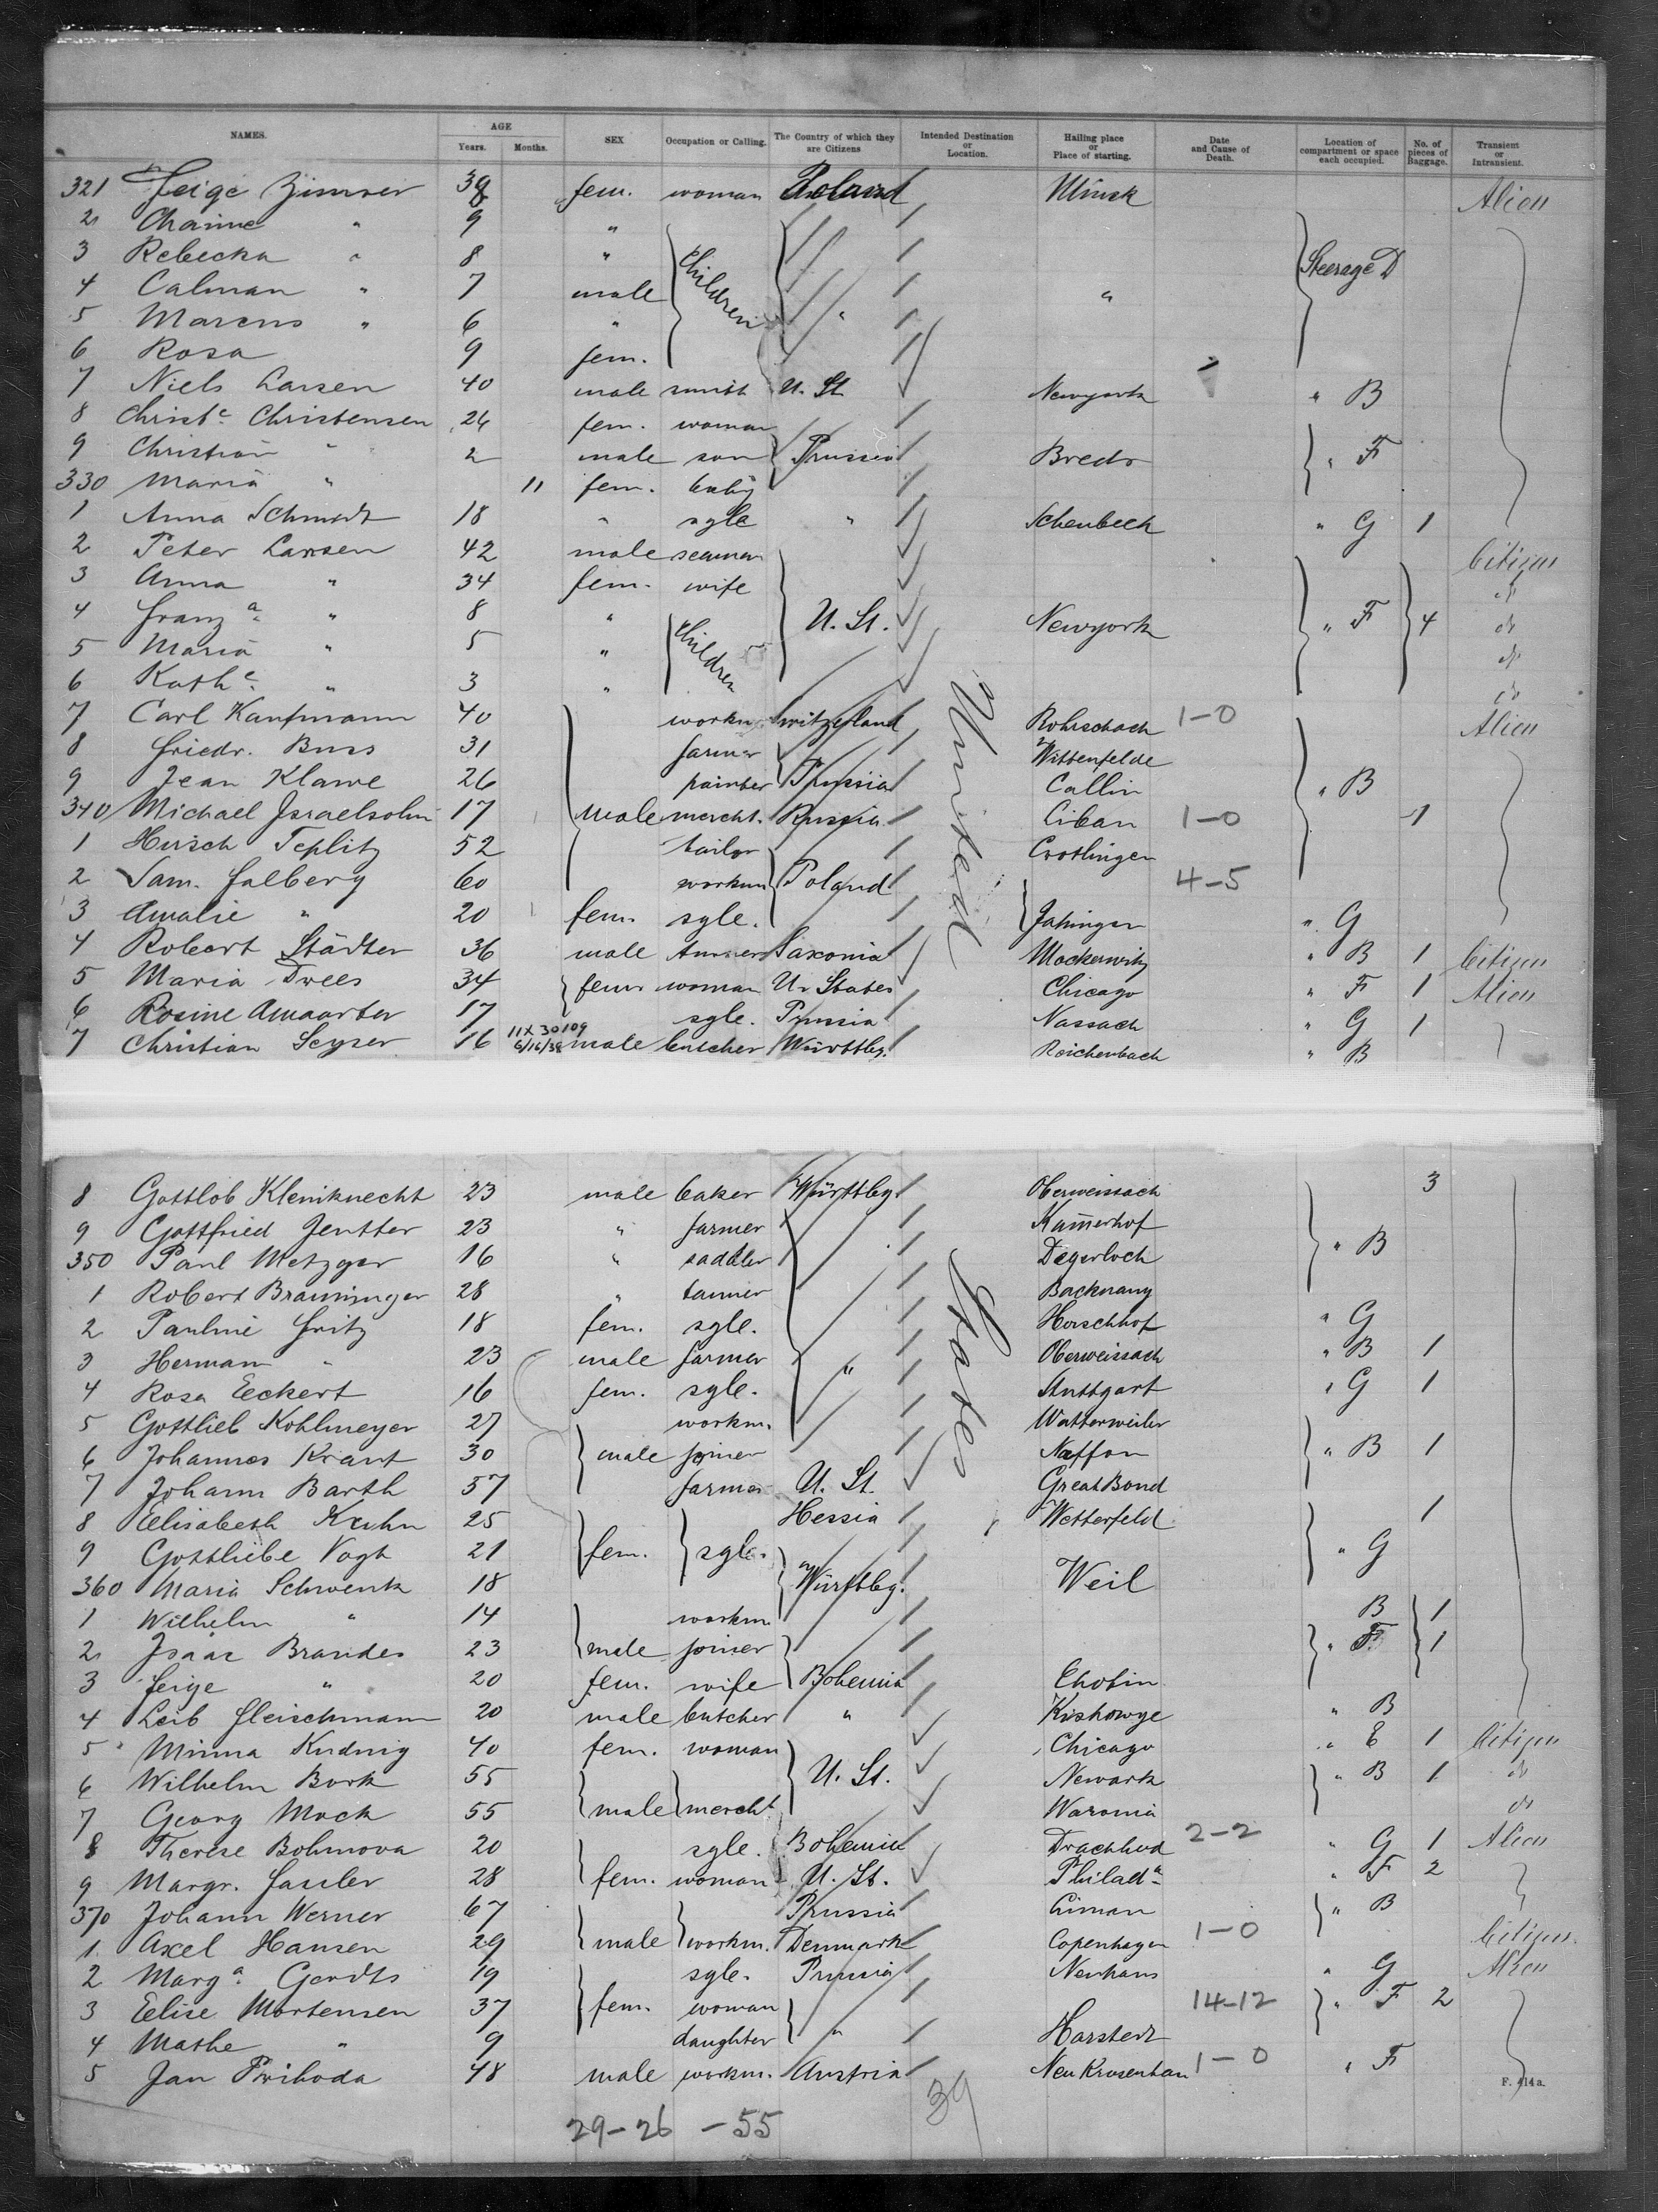 NAMES. AGE Years. Months. SEX Occupation or Calling. The Country of which they are Citizens Intended Destination or Location. Hailing place or Place of starting. Date and Cause of Death. Location of compartment or space each occupied. No. of pieces of Baggage. Transient or Intransient.
321 Feige Zimser 38 fem. woman Poland Minsk Alien
2 Channe " 9 "
3 Rebecka " 8 " Children Steerage D
4 Calman " 7 male "
5 Marcus " 6 " "
6 Rosa 9 fem.
7 Niels Larsen 40 male smith U. St. Newyork " B
8 Christe. Christensen 24 fem. woman
9 Christian " 2 male son Prussia Bredo " F
330 Maria " 11 fem. baby
1 Anna Schmidt 18 " sgle " Schenbeck " G 1
2 Peter Larsen 42 male seaman Citizen
3 Anna " 34 fem. wife do
4 Franza. " 8 " Children U. St. Newyork " F 4 do
5 Maria " 5 " do
6 Kathe. " 3 " do
7 Carl Kaufmann 40 workm Switzerland United Rohrschach 1-0 Alien
8 Friedr. Buss 31 farmer Wittenfelde
9 Jean Klawe 26 painter Prussia Callin " B
340 Michael Israelsohn 17 male mercht. Russia Liban 1-0 1
1 Hirsch Teplitz 52 tailor Crottingen
2 Sam. Falberg 60 workm Poland 4-5
3 Amalie " 20 fem. sgle. " G
4 Robert Städter 36 male Saxonia Mockerwitz " B 1 Citizen
5 Maria Drees 34 fem woman U. States Chicago " F 1 Alien
6 Rosine Amaarter 17 sgle. Prussia Nassach " G 1
7 Christian Seyser 16 11X 30109 6/16/38 male butcher Württbg. Reichenbach " B
8 Gottlob Kleinknecht 23 male baker Württbg. Oberweissach 3
9 Gottfried Jentter 23 " farmer Kam̄erhof
350 Paul Metzger 16 " saddler Degerloch " B
1 Robert Brauninger 28 " tanner States Backnang
2 Pauline Fritz 18 fem. sgle. Horschhof " G
3 Herman " 23 male farmer Oberweissach " B 1
4 Rosa Eckert 16 fem. sgle. " Stuttgart " G 1
5 Gottlieb Kohlmeyer 27 workm. Watterweiler
6 Johannes Kraut 30 male joiner Neffon " B 1
7 Johann Barth 57 farmer U. St. Great Bond
8 Elisabeth Kuhn 25 Hessia Wetterfeld 1
9 Gottliebe Vogt 21 fem. sgle. " G
360 Maria Schwenk 18 Württbg. Weil
1 Wilhelm " 14 workm B 1
2 Isaac Brandes 23 male joiner " F 1
3 Feige " 20 fem. wife Bohemia Chotin
4 Leib Fleischmann 20 male butcher " Kishowye " B
5 Minna Kudnig 40 fem. woman Chicago " E 1 Citizen
6 Wilhelm Bork 55 U. St. Newark " B 1 do
7 Georg Mock 55 male mercht Waronia do
8 Therese Bohmova 20 sgle. Bohemia Drachhud 2-2 " G 1 Alien
9 Margr. Fassler 28 fem. woman U. St. Philada. " F 2
370 Johann Werner 67 Prussia Liman " B
1 Axel Hansen 29 male workm. Denmark Copenhagen 1-0 Citizen.
2 Marga. Gerdts 19 sgle. Prussia Neuhaus " G Alien
3 Elise Mortensen 37 fem. woman 14-12 " F 2
4 Mathe " 9 daughter " Harstedt
5 Jan Prihoda 48 male workm. Austria Neu Krusenhan 1-0 " F
F. 414a.
29-26 -55 39